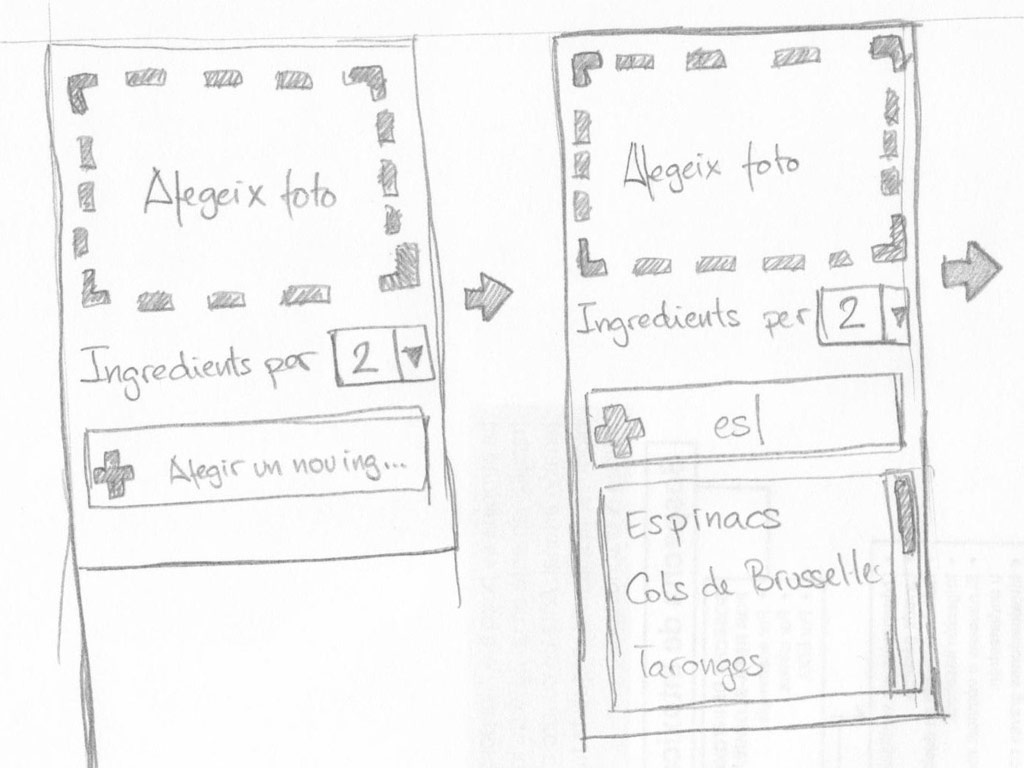 Afegeix foto
Ingredients per 2
Afegir un nou ing...
Afegeix foto
Ingredients per 2
es
Espinacs
Cols de Brussel·le
Taronges